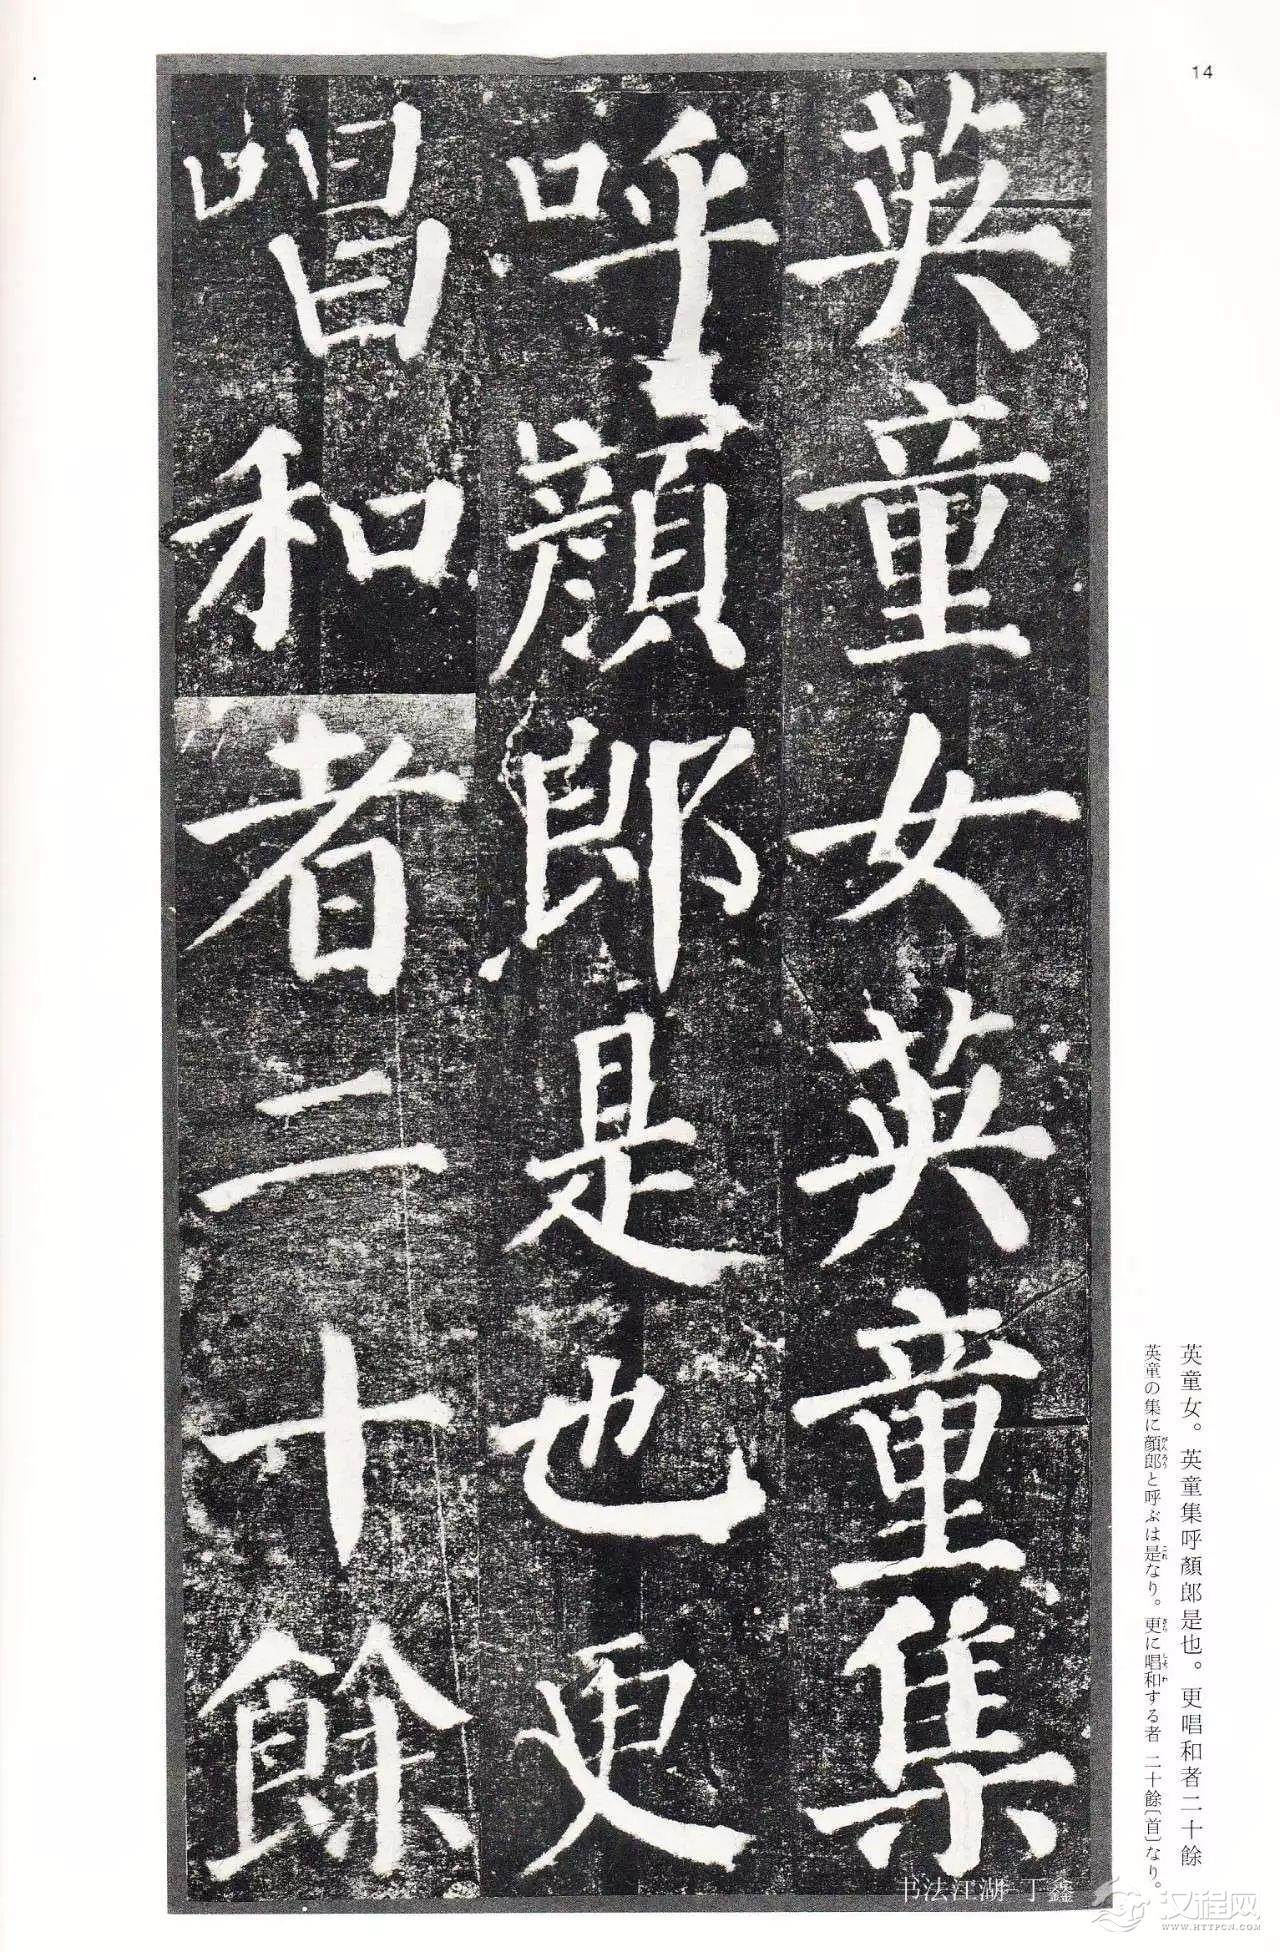 14
英童女英童集
呼顔郎是也更
唱和者二十餘
英童女。英童集呼顔郎是也。更唱和者二十餘
英童の集に顔郎と呼ぶは是なり。更に唱和する者 二十餘〔首〕なり。
がんろう
これ
さら
しょうわ
书法江湖-丁鑫
汉程网
WWW.HTTPCN.COM